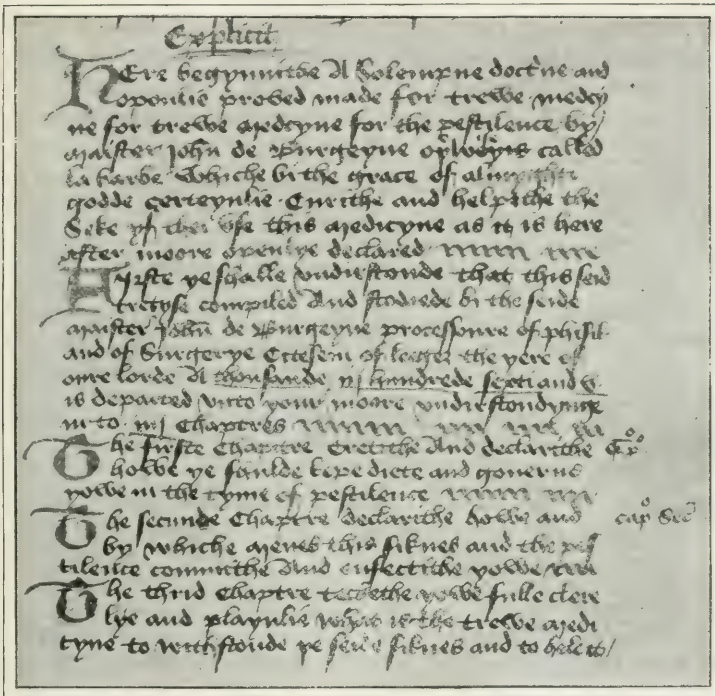 Explicit
Here begynnithe A Solempne doctrne and
oponlie proved made for trewe medcy
ne for trewe medcyne for the pestilence by/
maister John de Burgeyne called
la barbe Whiche bi the grace of almyghti
godde certeynlie Curithe and helpithe the
Seke yf thei vse this medicyne as it is here
After moore openlye declared
Firste ye schalle vndirstonde that this seid
tretyse compiled And stodiede bi the seide
maister John de Burgeyne processoure of phisik
and of Surgerye the yere of
oure lorde A thousande iij hundrede septi and v
is departed vnto your moore vndirstondynge
in to iiij Chaptres
The firste Chaptre tretithe And declarithe Capo
howe ye shulde kepe diete and governe
yowe in the tyme of pestilence
The secunde Chaptre declarithe howe and cap Sec
by whiche menes this siknes and the pes
tilence commithe And enfectithe yowe
The thrid Chaptre techethe yowe fulle clere
lye and playnlie what is the trewe medi
cyne to withstonde ye seide siknes and to hele it/